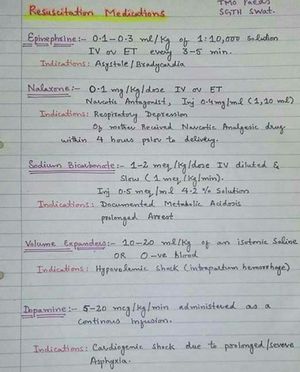 TMO Paeds
Resuscitation Medications SGTH Swat.
Epinephrine:- 0.1-0.3 ml/kg of 1:10,000 solution
IV or ET every 3-5 min.
Indications: Asystole/Bradycardia
Naloxone:- 0.1 mg/kg/dose IV or ET
Narcotic Antagonist, Inj 0.4mg/ml (1,10 ml)
Indications: Respiratory Depression
If mother Recived Narcotic Analgesic drug
within 4 hours prior to delivery.
Sodium Bicarbonate:- 1-2 meq/kg/dose IV diluted &
Slow (1 meq/kg/min).
Inj 0.5 meq/ml 4.2 % Solution
Indications: Documented Metabolic Acidosis
prolonged Arrest
Volume Expanders:- 10-20 ml/kg of an isotonic Saline
OR O-ve blood
Indications: Hypovolemic shock (intrapartum hemorrhage)
Dopamine:- 5-20 mcg/kg/min administered as a
Continous infusion.
Indications: Cardiogenic shock due to prolonged/severe
Asphyxia.